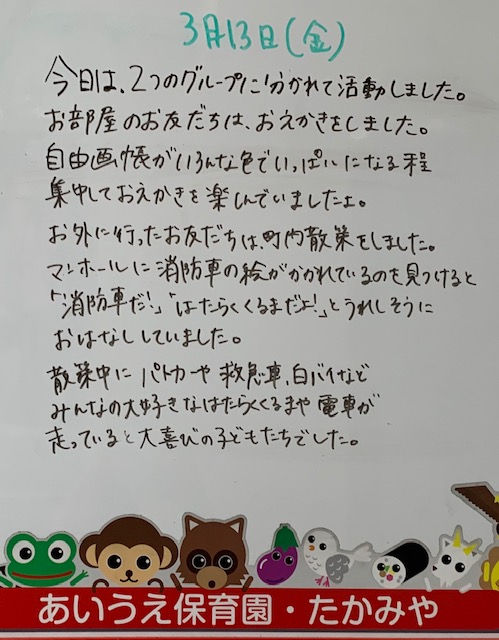 3月13日(金)
今日は、2つのグループに分かれて活動しました。
お部屋のお友だちは、おえかきをしました。
自由画帳がいろんな色でいっぱいになる程
集中しておえかきを楽しんでいましたよ。
お外に行ったお友だちは、町内散策をしました。
マンホールに消防車の絵がかかれているのを見つけると
「消防車だ!」「はたらくくるまだよ!」とうれしそうに
おはなししていました。
散策中にパトカーや救急車、白バイなど
みんなの大好きなはたらくくるまや電車が
走っていると大喜びの子どもたちでした。
あいうえ保育園・たかみや